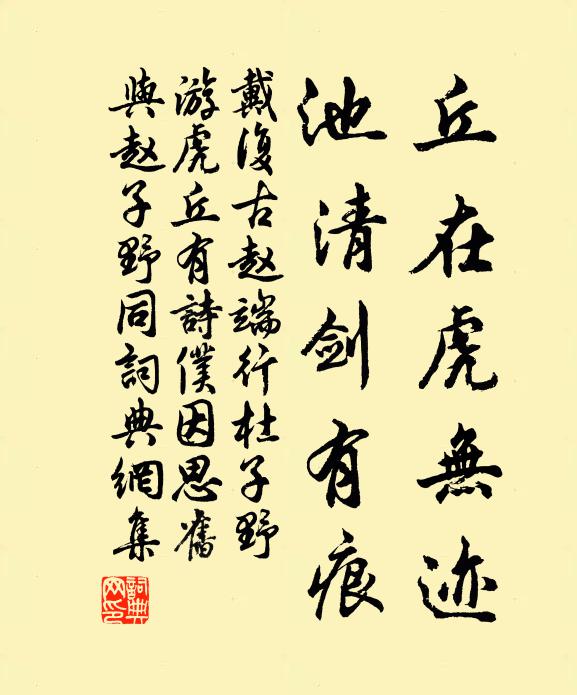 丘在虎無迹
池清剑有痕
戴復古赵端行杜子野
游虎丘有詩僕因思舊
與赵子野同詞典網集
詞典网印